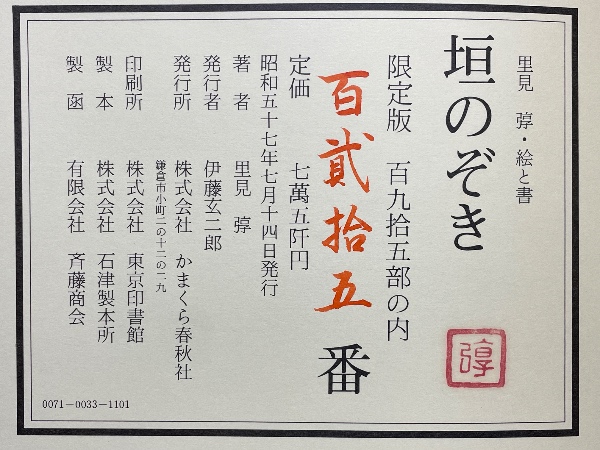 里見　弴・絵と書
垣のぞき
弴
限定版　百九拾五部の内
百貳拾五番
定価　七萬五阡円
昭和五十七年七月十四日発行
著　者　里見　弴
発行者　伊藤玄二郎
発行所　株式会社　かまくら春秋社
鎌倉市小町二の十二の一九
印刷所　株式会社　東京印書館
製　本　株式会社　石津製本所
製　函　有限会社　斉藤商会
0071－0033－1101